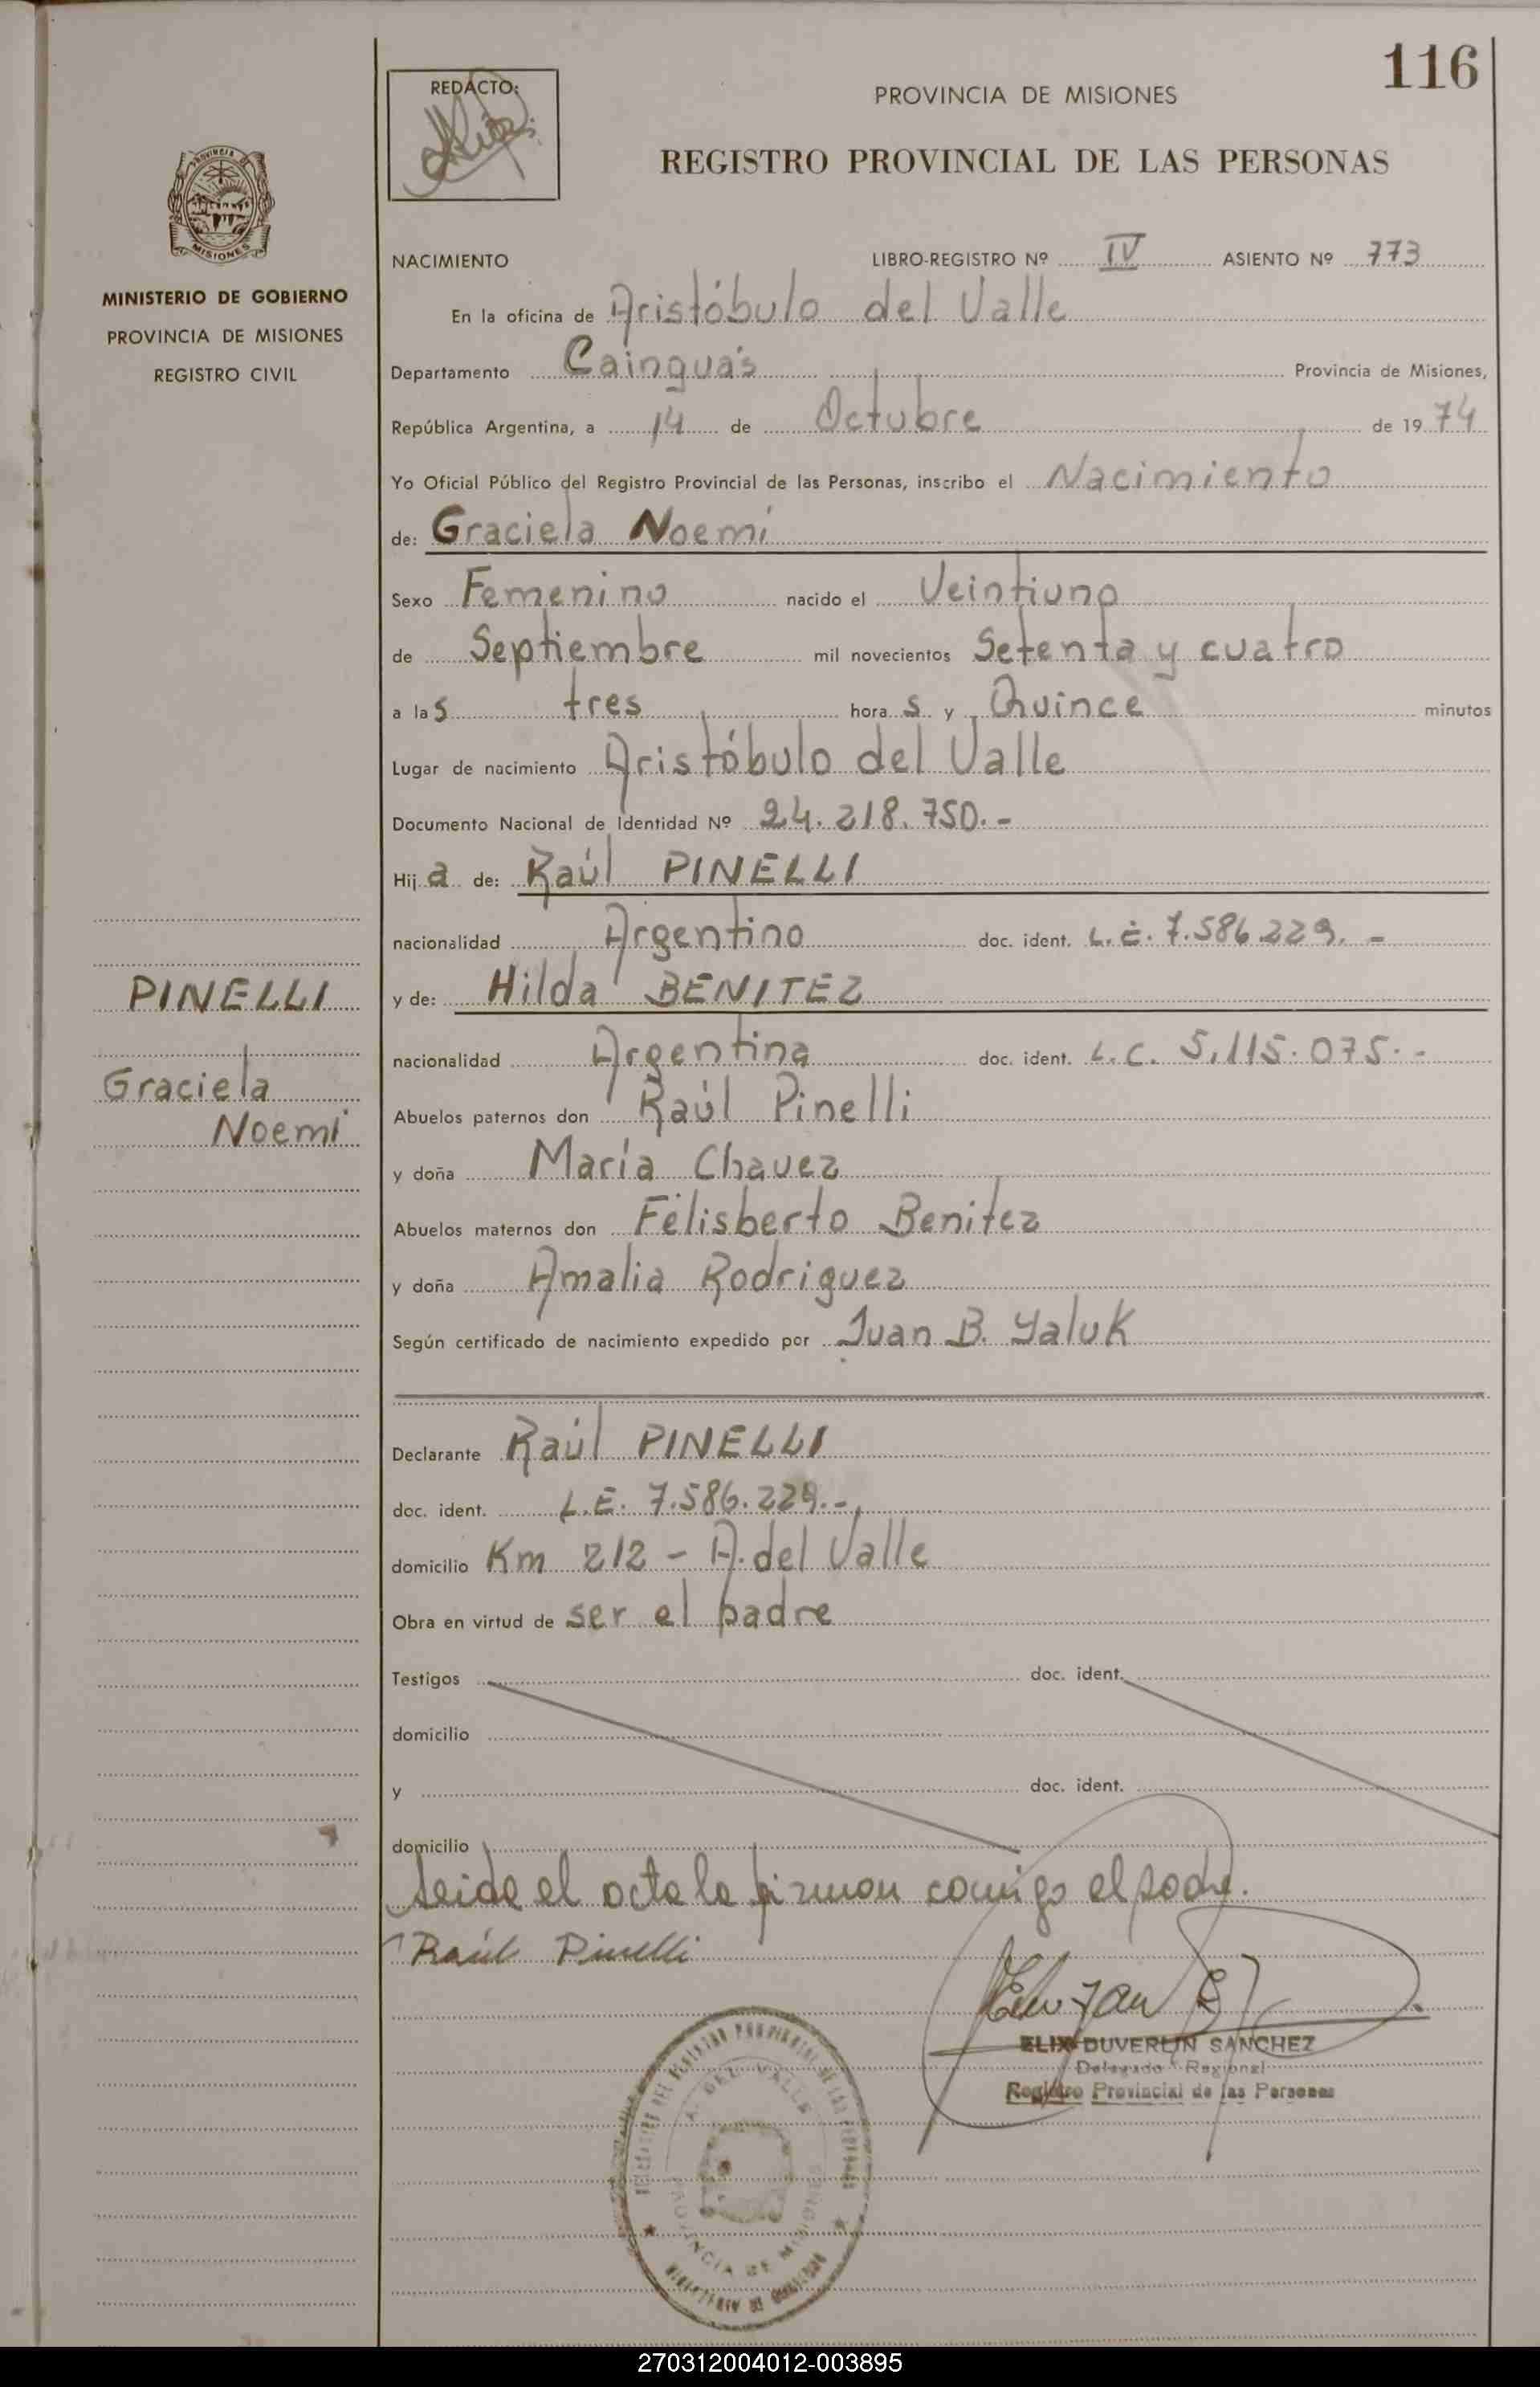 116
REDACTO:
PROVINCIA DE MISIONES
REGISTRO PROVINCIAL DE LAS PERSONAS
PROVINCIA DE
MISIONES
MINISTERIO DE GOBIERNO
PROVINCIA DE MISIONES
REGISTRO CIVIL
NACIMIENTO LIBRO-REGISTRO Nº IV ASIENTO Nº 773
En la oficina de Aristóbulo del Valle
Departamento Cainguás Provincia de Misiones,
República Argentina, a 14 de Octubre de 19 74
Yo Oficial Público del Registro Provincial de las Personas, inscribo el Nacimiento
de: Graciela Noemí
Sexo Femenino nacido el Veintiuno
de Septiembre mil novecientos Setenta y cuatro
a las tres horas y Quince minutos
Lugar de nacimiento Aristóbulo del Valle
Documento Nacional de Identidad Nº 24.218.750.-
Hija de: Raúl PINELLI
nacionalidad Argentino doc. ident. L.E. 7.586.229.-
y de: Hilda BENITEZ
nacionalidad Argentina doc. ident. L.C. 5.115.075.-
Abuelos paternos don Raúl Pinelli
y doña María Chavez
Abuelos maternos don Felisberto Benitez
y doña Amalia Rodriguez
Según certificado de nacimiento expedido por Juan B. Yaluk
PINELLI
Graciela
Noemí
Declarante Raúl PINELLI
doc. ident. L.E. 7.586.229.-
domicilio Km 212 - A. del Valle
Obra en virtud de ser el padre
Testigos doc. ident.
domicilio
y doc. ident.
domicilio
Leida el acta la firman conmigo el padre.
Raúl Pinelli
ELIX DUVERLIN SANCHEZ
Delegado Regional
Registro Provincial de las Personas
DEL REGISTRO PROVINCIAL DE LAS PERSONAS
A. DEL VALLE
PROVINCIA DE MISIONES
MINISTERIO DE GOBIERNO
270312004012-003895